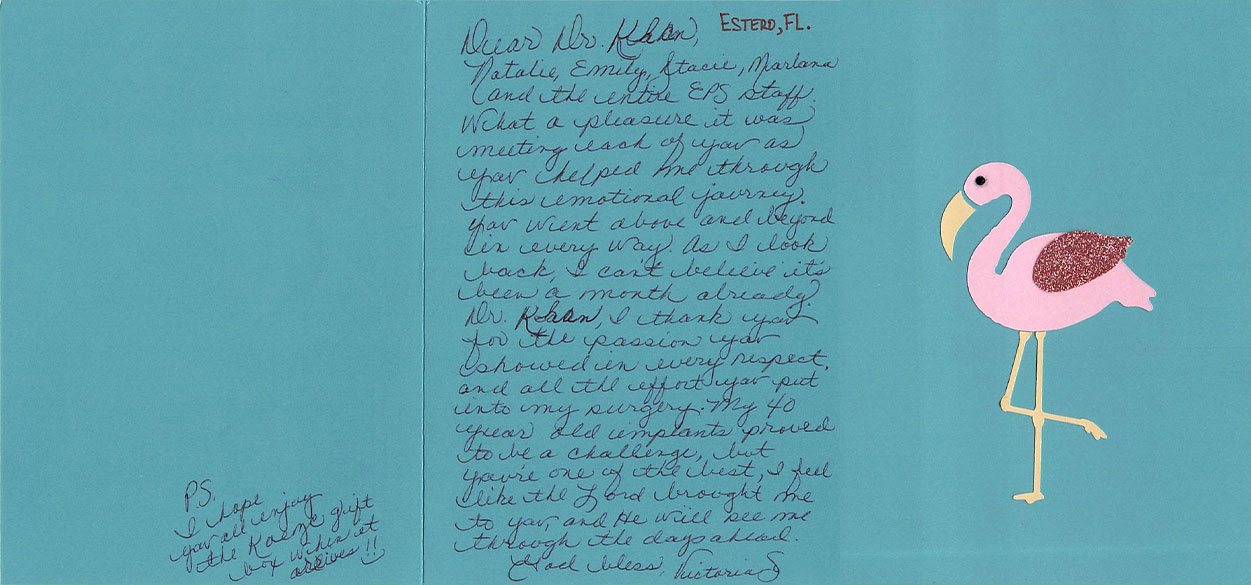 Dear Dr. Khan,
ESTERO, FL.
Natalie, Emily, Stacie, Marlana
and the entire EPS staff.
What a pleasure it was
meeting each of you as
you helped me through
this emotional journey.
You went above and beyond
in every way. As I look
back, I can't believe it's
been a month already.
Dr. Khan, I thank you
for the passion you
showed in every respect,
and all the effort you put
into my surgery. My 40
year old implants proved
to be a challenge, but
you're one of the best, I feel
like the Lord brought me
to you, and He will see me
through the days ahead.
God bless, Victoria S
PS.
I hope
you all enjoy
the gift
box when it
arrives!!